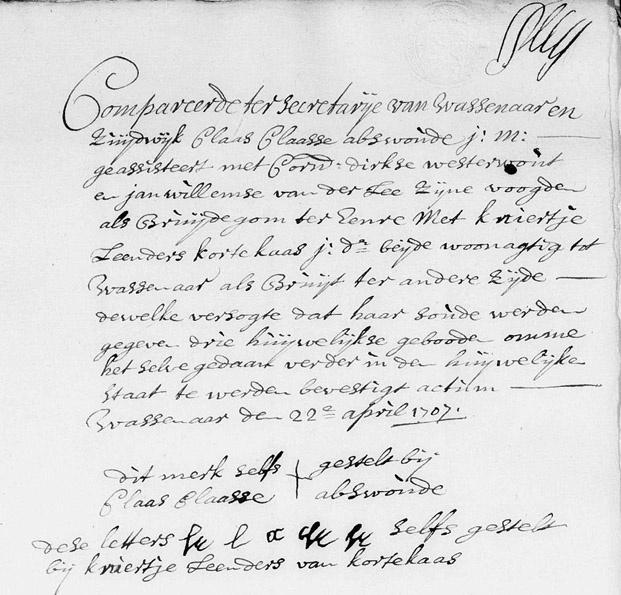 Compareerde ter secretarije van Wassenaar en
Zuijdwijk Claas Claasse abswoude j: m:
geassisteert met Corn: dirkse westerwout
en jan willemse van der Lee Zijne voogden
als Bruijdegom ter Eenre Met kniertje
Leenders kortekaas j: dr beijde woonagtig tot
Wassenaar als Bruijt ter andere Zijde
dewelke versogte dat haar soude werden
gegeven drie huijwelijkse geboden omme
het selve gedaan verder in den huijwelijke
staat te werden bevestigt actum
Wassenaar den 22e april 1707.
dit merk selfs gestelt bij
Claas Claasse abswoude
dese letters selfs gestelt
bij kniertje Leenders van kortekaas